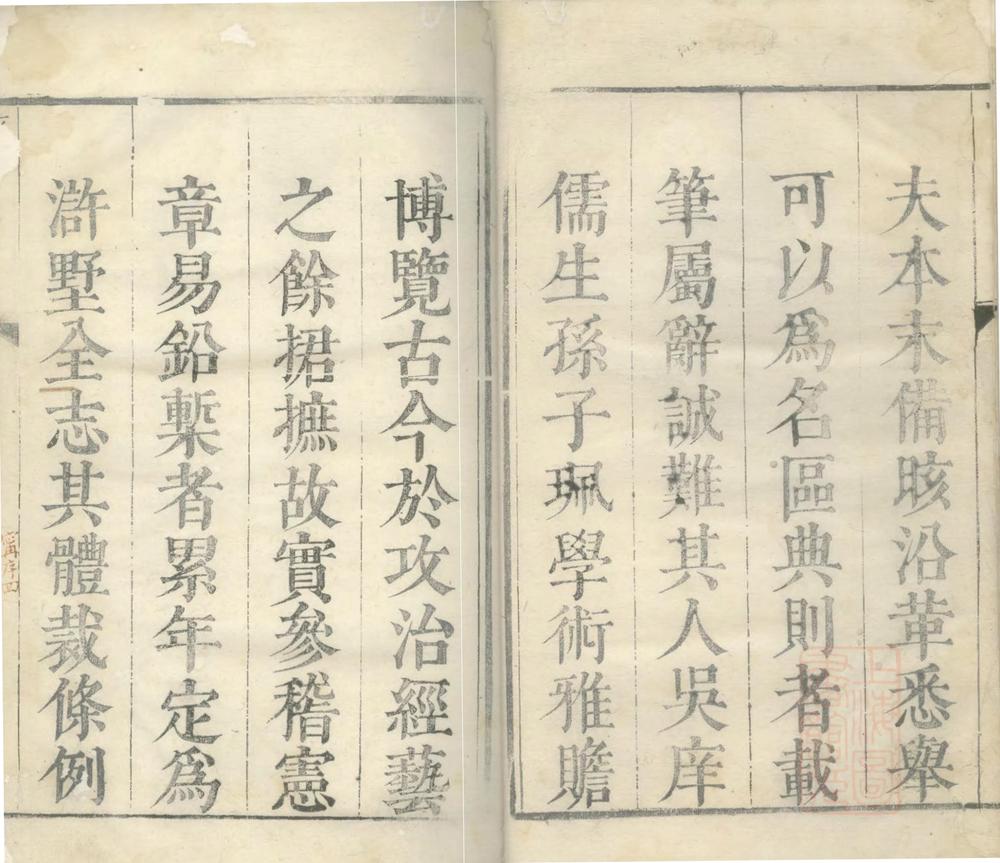 夫本末備晐沿革悉舉
可以為名區典則者載
筆屬辭誠難其人吳庠
儒生孫子珮學術雅贍
博覽古今於攻治經藝
之餘捃摭故實參稽憲
章易鉛槧者累年定為
滸墅全志其體裁條例